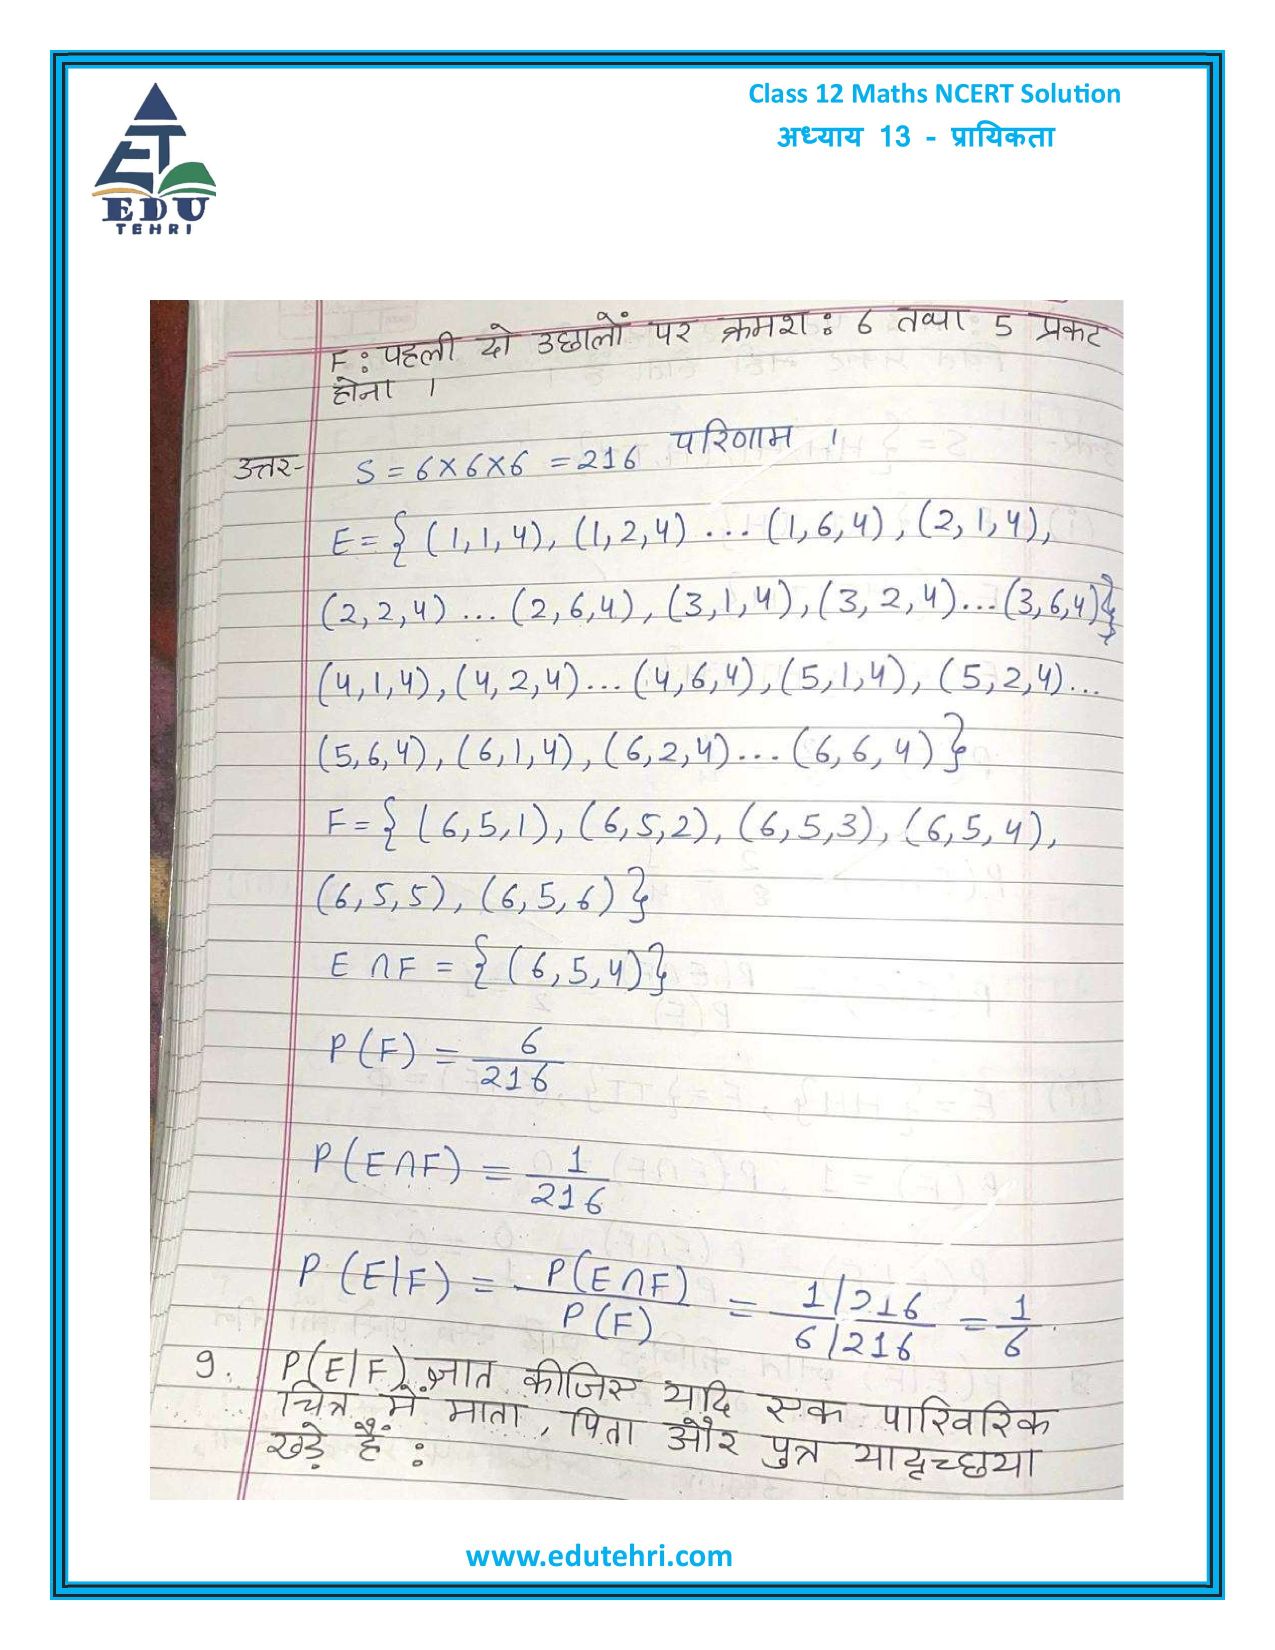 EDU
TEHRI
Class 12 Maths NCERT Solution
अध्याय 13 - प्रायिकता
F: पहली दो उछालों पर क्रमश: 6 तथा 5 प्रकट
होना ।
उत्तर- S = 6×6×6 = 216 परिणाम ।
E = { (1,1,4), (1,2,4) ... (1,6,4), (2,1,4),
(2,2,4) ... (2,6,4), (3,1,4), (3,2,4)...(3,6,4)}
(4,1,4), (4,2,4)...(4,6,4), (5,1,4), (5,2,4)...
(5,6,4), (6,1,4), (6,2,4)...(6,6,4) }
F = { (6,5,1), (6,5,2), (6,5,3), (6,5,4),
(6,5,5), (6,5,6) }
E ∩ F = { (6,5,4) }
P(F) = 6/216
P(E∩F) = 1/216
P(E|F) = P(E∩F)/P(F) = 1/216 / 6/216 = 1/6
9. P(E|F) ज्ञात कीजिए यदि एक पारिवारिक
चित्र में माता, पिता और पुत्र यादृच्छया
खड़े हैं :
www.edutehri.com